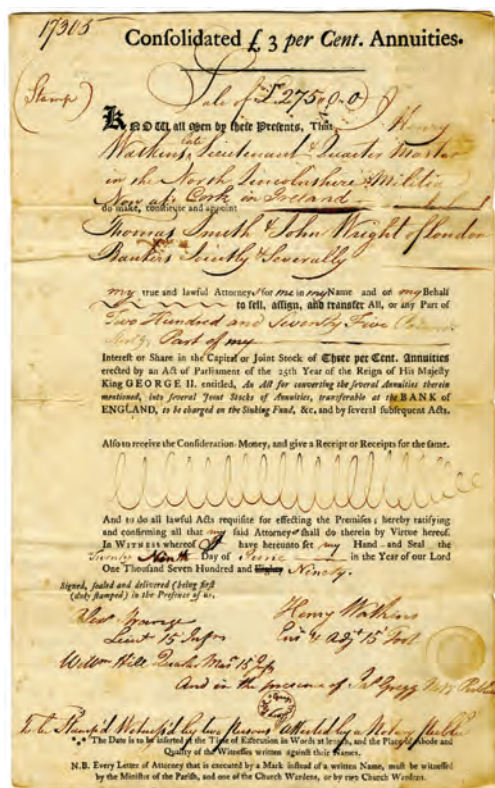 17305
Consolidated £ 3 per Cent. Annuities.
(Stamp)
Sale of £.275,0.0
KNOW all Men by these Presents, That I Henry
Watkins, late Lieutenant & Quarter Master
in the North Lincolnshire Militia
Now at Cork in Ireland
do make, constitute and appoint
Thomas Smith & John Wright of London
Bankers Jointly & Severally
my true and lawful Attorneys for me in my Name and on my Behalf
to sell, assign, and transfer All, or any Part of
Two Hundred and Seventy Five Pounds
Part of my
Interest or Share in the Capital or Joint Stock of Three per Cent. Annuities
erected by an Act of Parliament of the 25th Year of the Reign of His Majesty
King GEORGE II. entitled, An Act for converting the several Annuities therein
mentioned, into several Joint Stocks of Annuities, transferable at the BANK of
ENGLAND, to be charged on the Sinking Fund, &c. and by several subsequent Acts.
Also to receive the Consideration-Money, and give a Receipt or Receipts for the same.
And to do all lawful Acts requisite for effecting the Premises; hereby ratifying
and confirming all that my said Attorneys shall do therein by Virtue hereof.
In WITNESS whereof I have hereunto set my Hand and Seal the
Twenty Ninth Day of June in the Year of our Lord
One Thousand Seven Hundred and Eighty Ninety.
Signed, sealed and delivered (being first
(duly stamped) in the Presence of us,
Henry Watkins
Lieut 15 Infy
Ens & Adjt 15 Foot
Willm Hill Quater Mas 15 Inf
And in the presence of Jas Gregg Noty Publick
To be Stamp'd Witness'd by two persons attested by a Notary Publick
*** The Date is to be inserted at the Time of Execution in Words at length, and the Place of Abode and
Quality of the Witnesses written against their Names.
N.B. Every Letter of Attorney that is executed by a Mark instead of a written Name, must be witnessed
by the Minister of the Parish, and one of the Church Wardens, or by two Church Wardens.